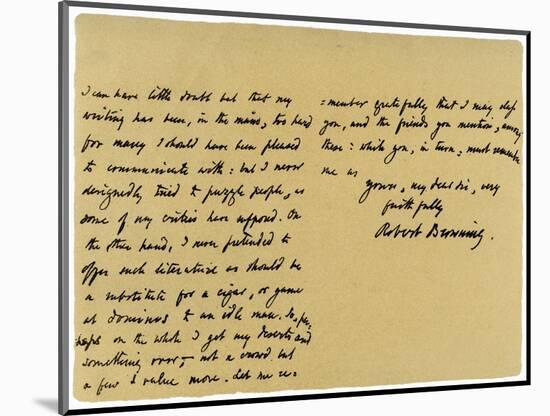 I can have little doubt but that my
writing has been, in the main, too hard
for many I should have been pleased
to communicate with: but I never
designedly tried to puzzle people, as
some of my critics have supposed. On
the other hand, I never pretended to
offer such literature as should be
a substitute for a cigar, or game
at dominos to an idle man. So, per-
haps on the whole I get my deserts and
something over,- not a crowd but
a few I value more. Let me re=
=member gratefully that I may class
you, and the friends you mention, among
these: while you, in turn, must remember
me as
yours, my dear sir, very
faithfully
Robert Browning.